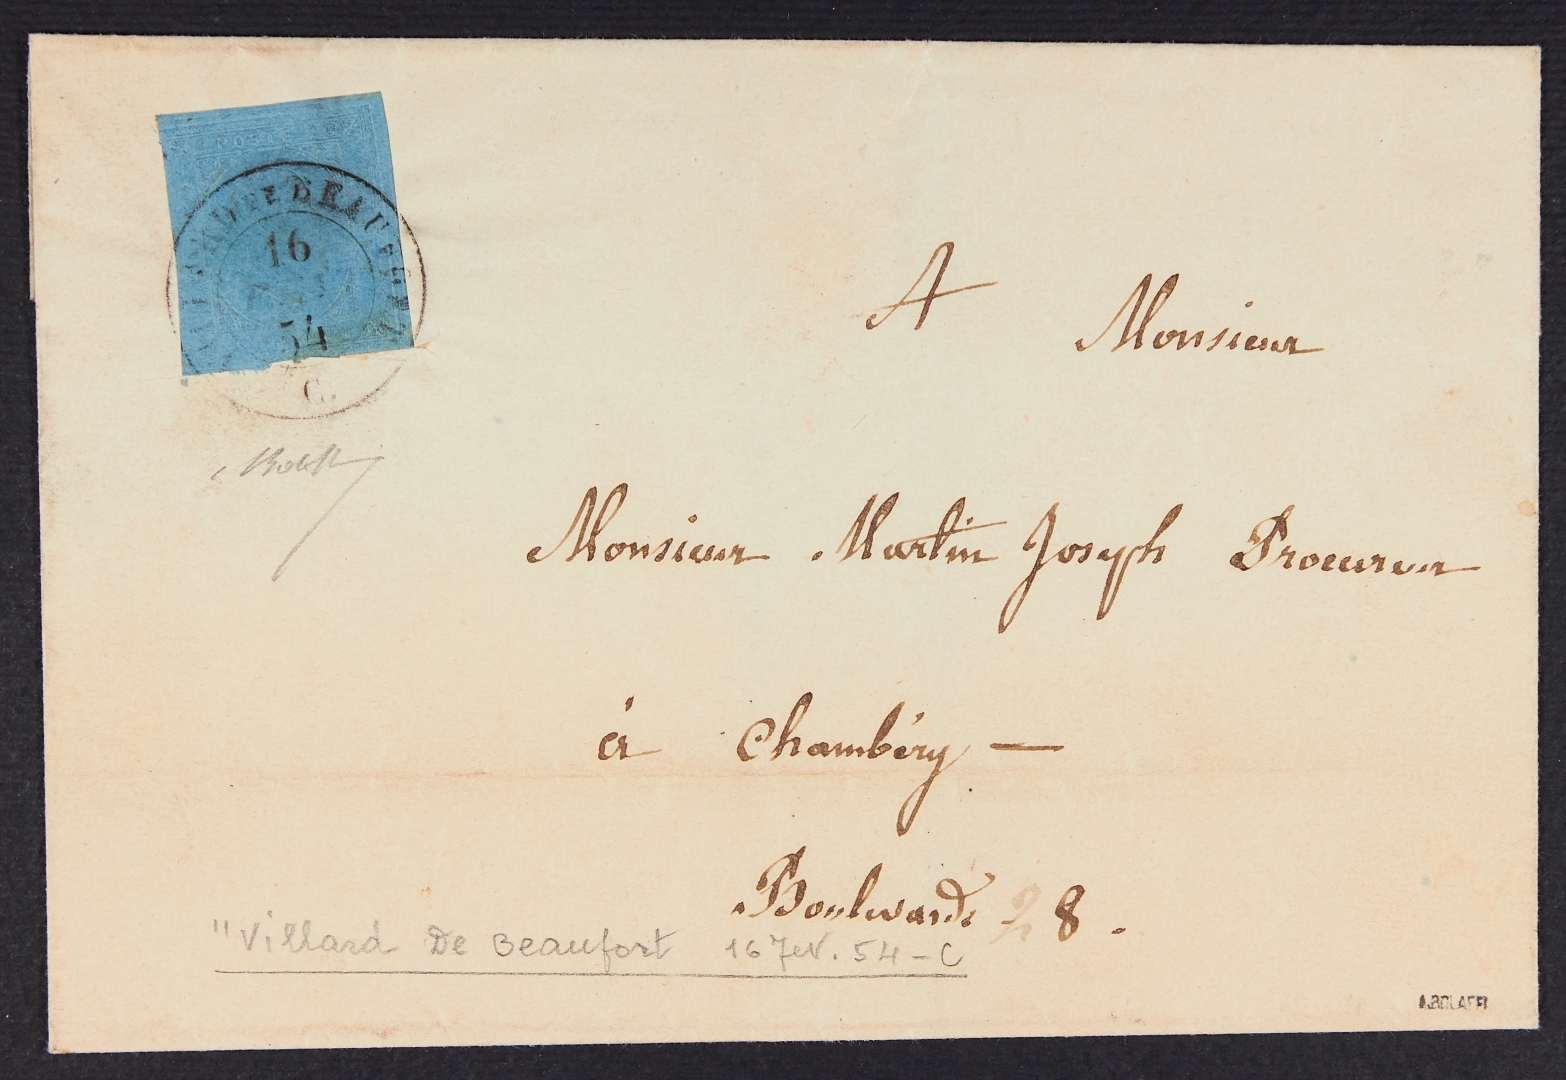 DE BEAUFORT
16
54
C.
A Monsieur
Monsieur Martin Joseph Procureur
à Chambéry —
Boulevards 28.
"Villard De Beaufort 16 Fev. 54 - C
A. BOLAFFI